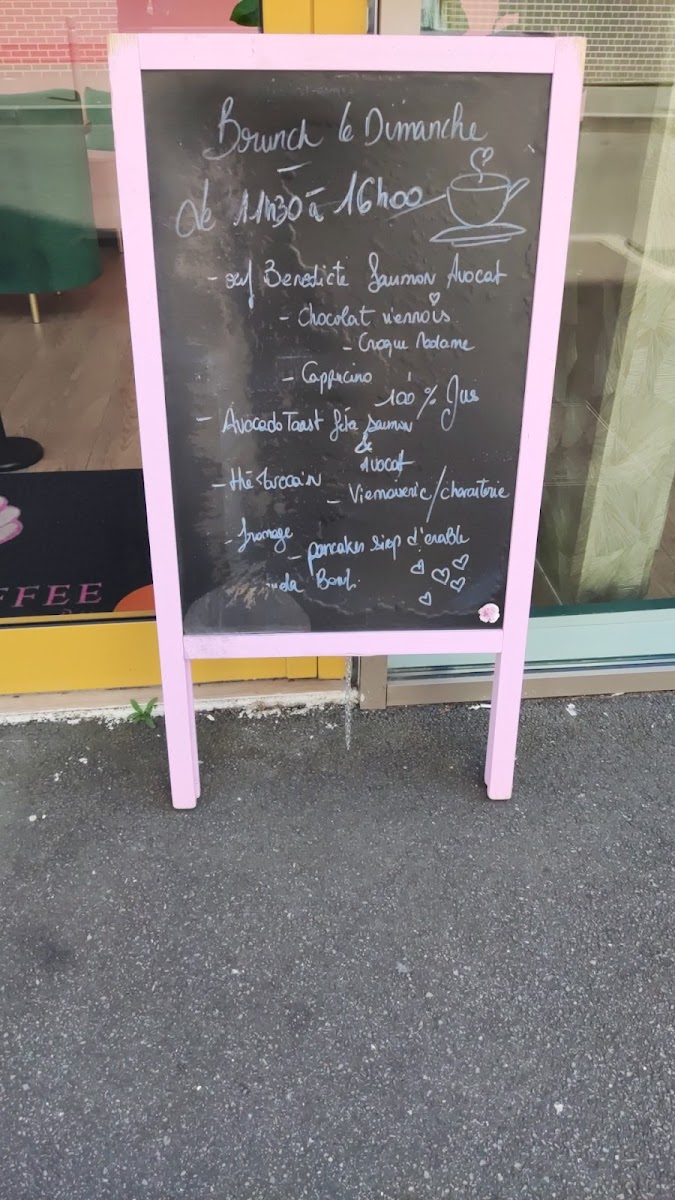 Brunch le Dimanche
de 11h30 à 16h00
- œuf Bénédicte Saumon Avocat
- Chocolat viennois
- Croque Madame
- Cappucino
100 % Jus
- Avocado Toast féta saumon
&
avocat
- thé Marocain
- Viennoiserie / charcuterie
- fromage
- pancakes sirop d'érable
Bowl
FFEE